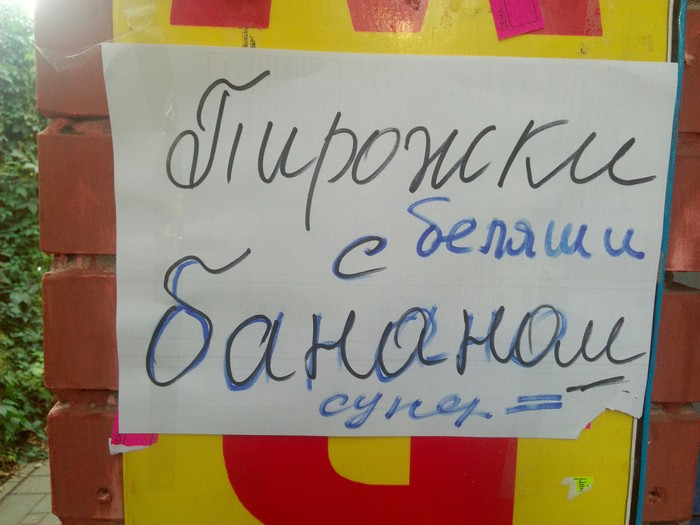 Пирожки
беляши
с
бананом
супер =